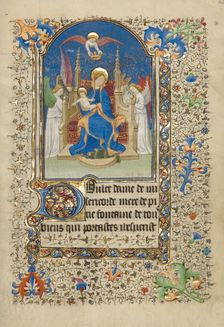 Doulce dame de mi
sericorde mere de pi
tie fontaine de tous
biens qui portastes iesucrist